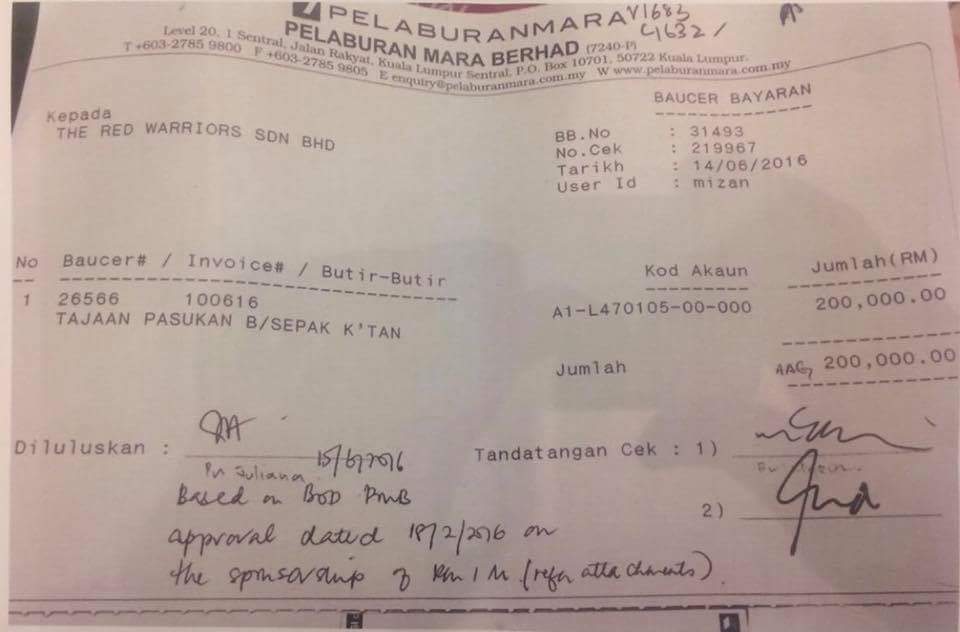 PELABURANMARA
Y1683
4632/
PELABURAN MARA BERHAD (7240-P)
Level 20, 1 Sentral, Jalan Rakyat, Kuala Lumpur Sentral, P.O. Box 10701, 50722 Kuala Lumpur.
T +603-2785 9800 F +603-2785 9805 E enquiry@pelaburanmara.com.my W www.pelaburanmara.com.my
BAUCER BAYARAN
Kepada
THE RED WARRIORS SDN BHD
BB.No : 31493
No.Cek : 219967
Tarikh : 14/06/2016
User Id : mizan
No Baucer# / Invoice# / Butir-Butir Kod Akaun Jumlah(RM)
1 26566 100616 A1-L470105-00-000 200,000.00
TAJAAN PASUKAN B/SEPAK K'TAN
Jumlah 200,000.00
Diluluskan : 15/6/2016 Tandatangan Cek : 1)
Pn Juliana
Based on BOD PMB
2)
approval dated 18/2/2016 on
the sponsorship of RM 1 M (refer attachments).